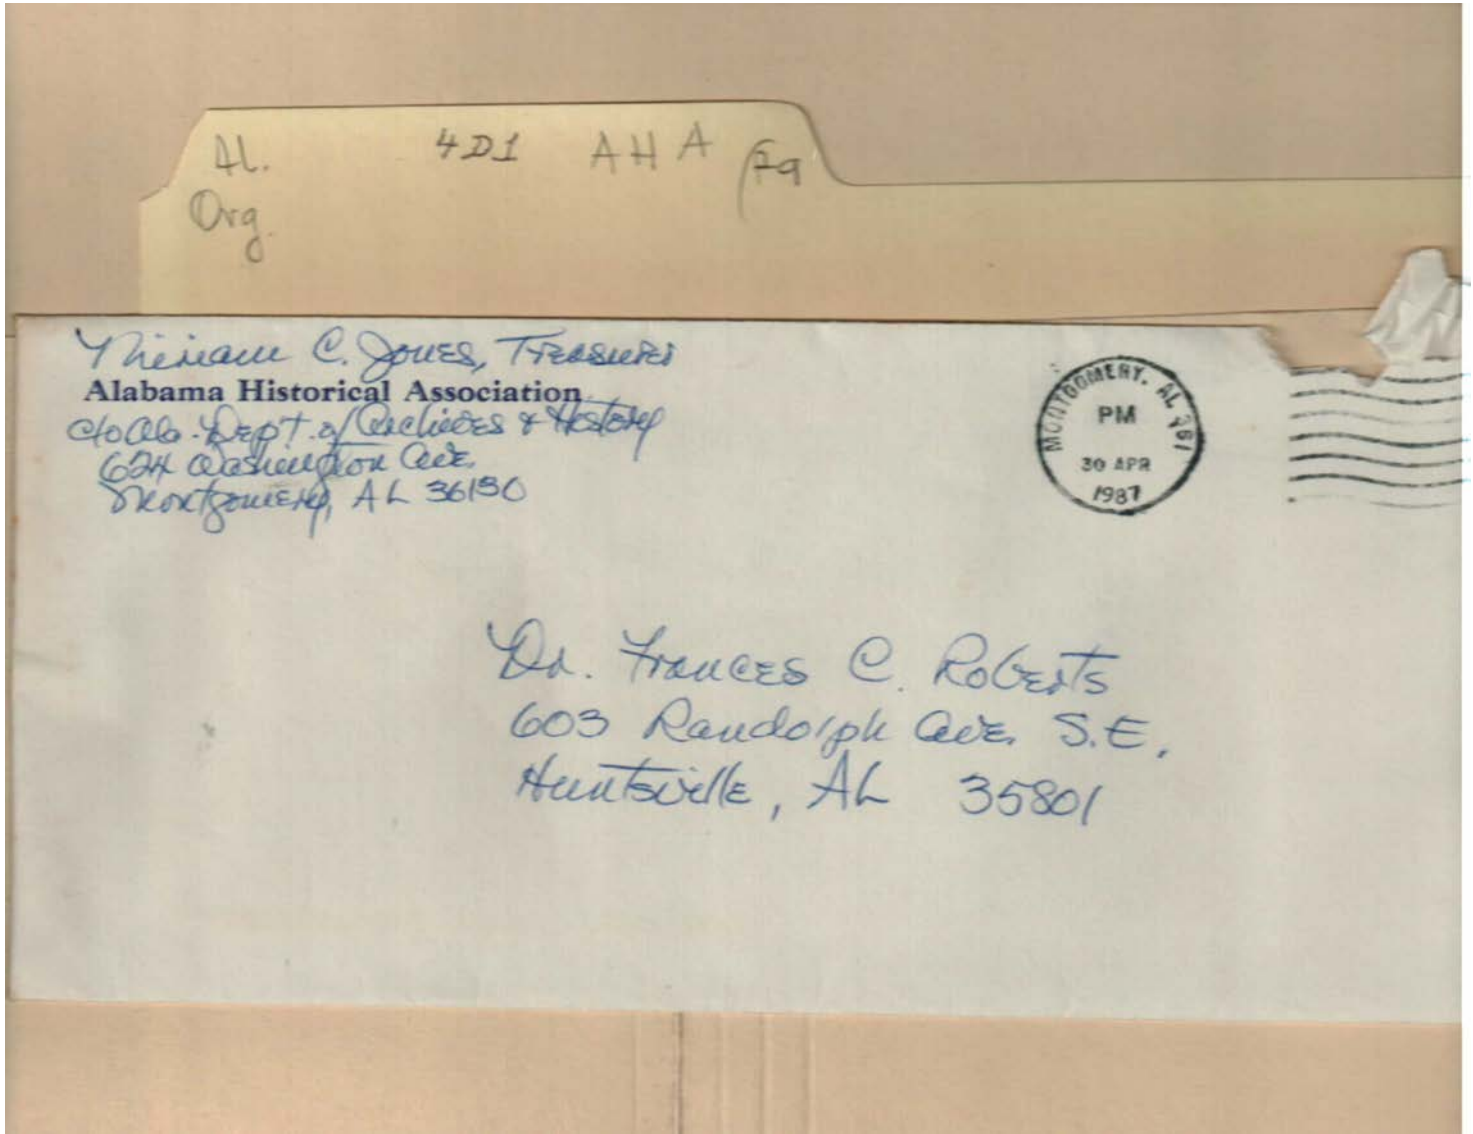 Al. 4D1 AHA
Org.
Miriam C. Jones, Treasurer
Alabama Historical Association
c/o Ala. Dept. of Archives & History
624 Washington Ave.
Montgomery, AL 36130
MONTGOMERY, AL 361
PM
30 APR
1987
Dr. Frances C. Roberts
603 Randolph Ave. S.E.
Huntsville, AL 35801